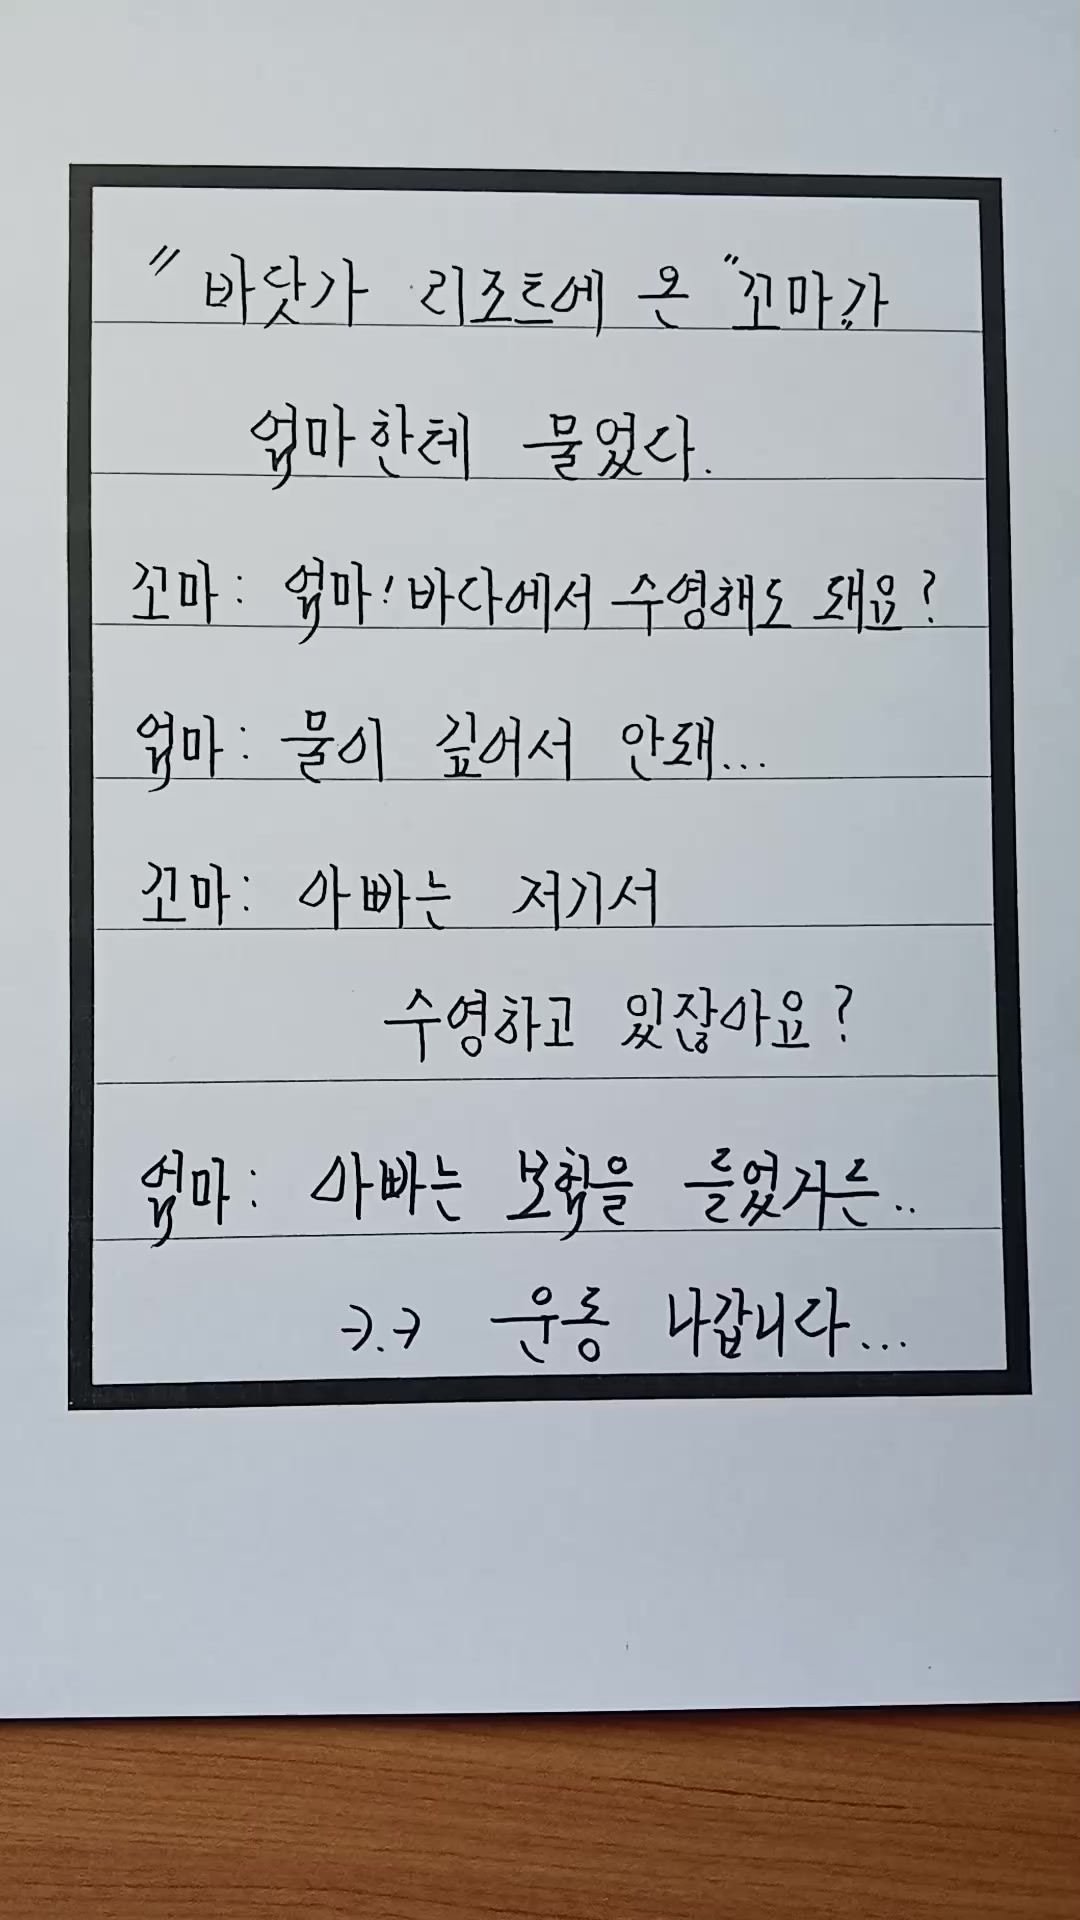 "바닷가 리조트에 온 "꼬마"가
엄마한테 물었다.
꼬마: 엄마! 바다에서 수영해도 돼요?
엄마: 물이 깊어서 안돼...
꼬마: 아빠는 저기서
수영하고 있잖아요?
엄마: 아빠는 보험을 들었거든..
->.-> 운동 나갑니다...